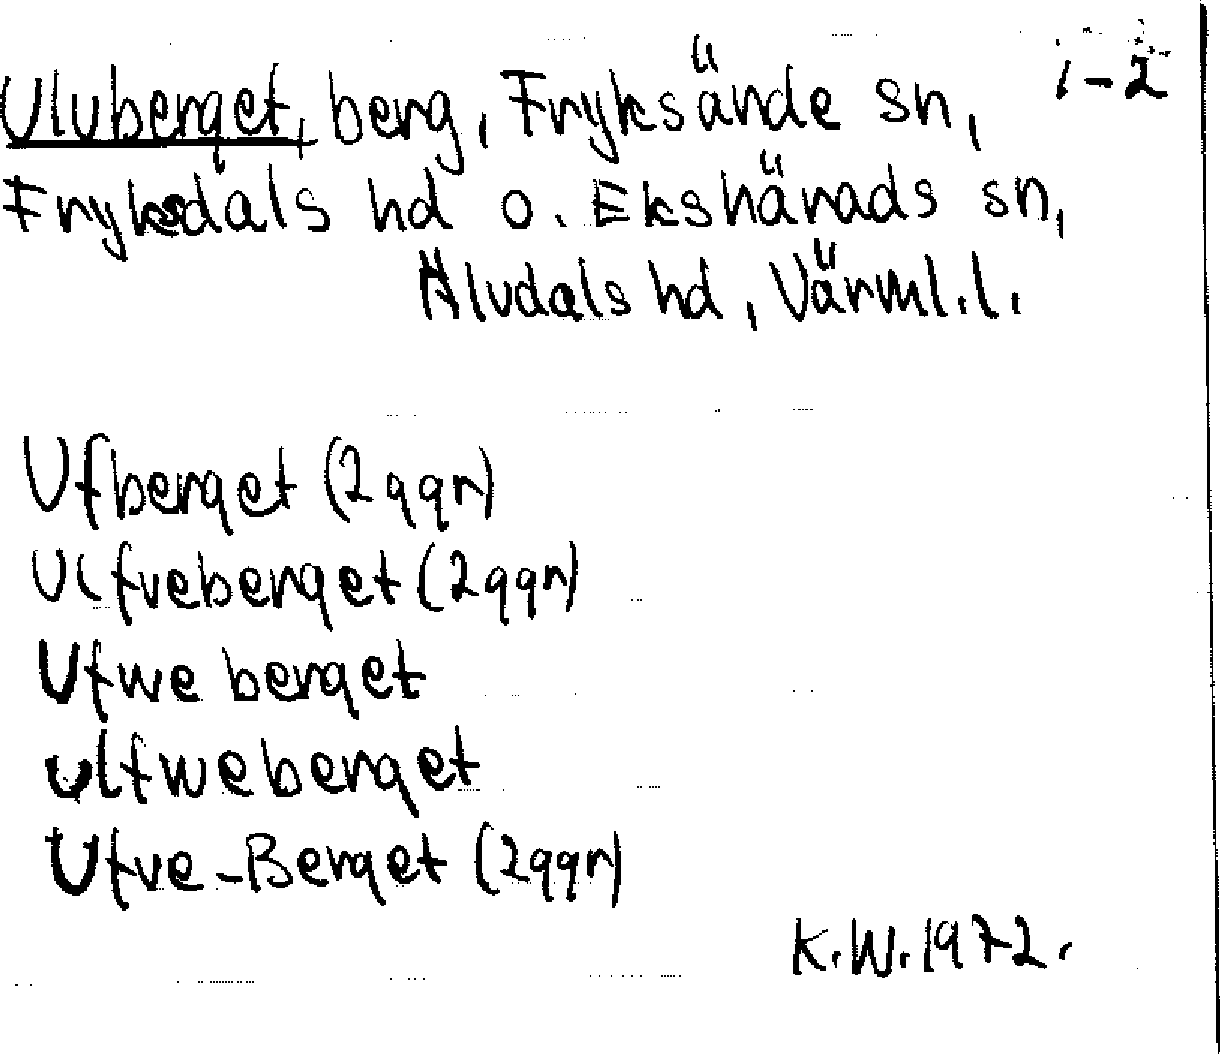 Ulvberget, berg, Fryksände sn, 1-2
Fryksdals hd o. Ekshärads sn,
Älvdals hd, Värml.l.
Ufberget (2 ggr)
Ulfveberget (2 ggr)
Ufwe berget
Ulfweberget
Ufve-Berget (2 ggr)
K.W. 1972.